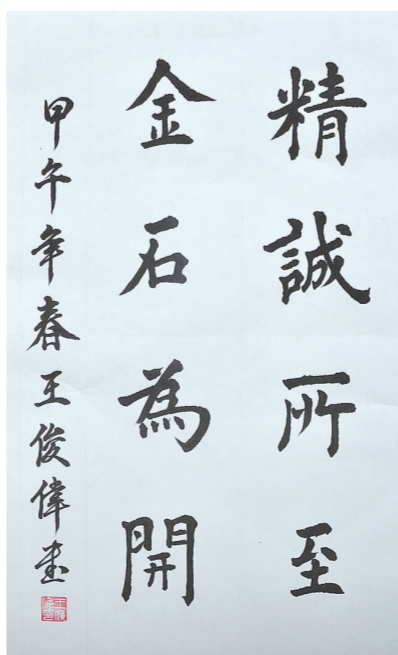 精誠所至
金石為開
甲午年春王俊偉書